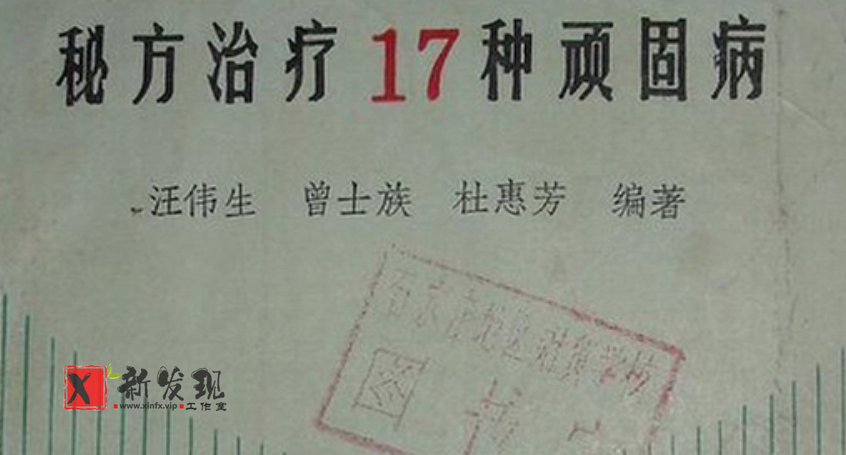 秘方治疗17种顽固病
汪伟生 曾士族 杜惠芳 编著
石家庄地区财贸学校
图书
新发现
www.xinfx.vip 工作室